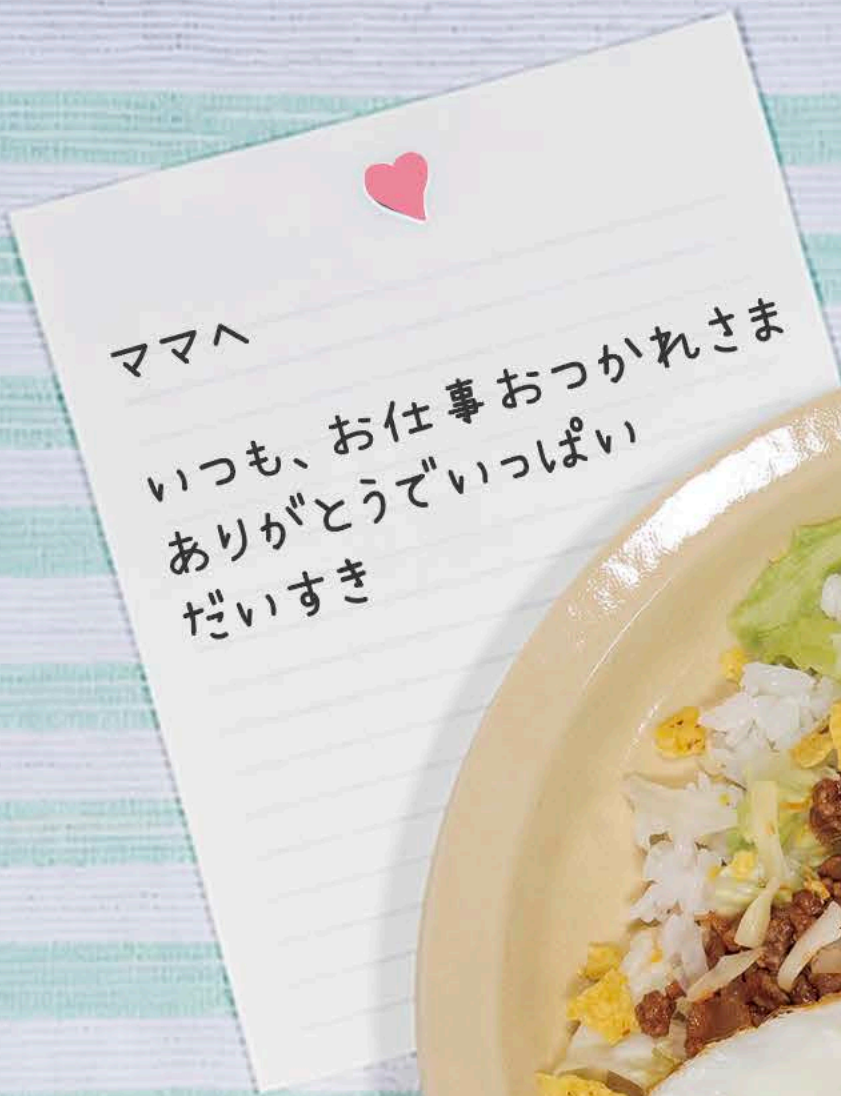 ママへ
いつも、お仕事おつかれさま
ありがとうでいっぱい
だいすき